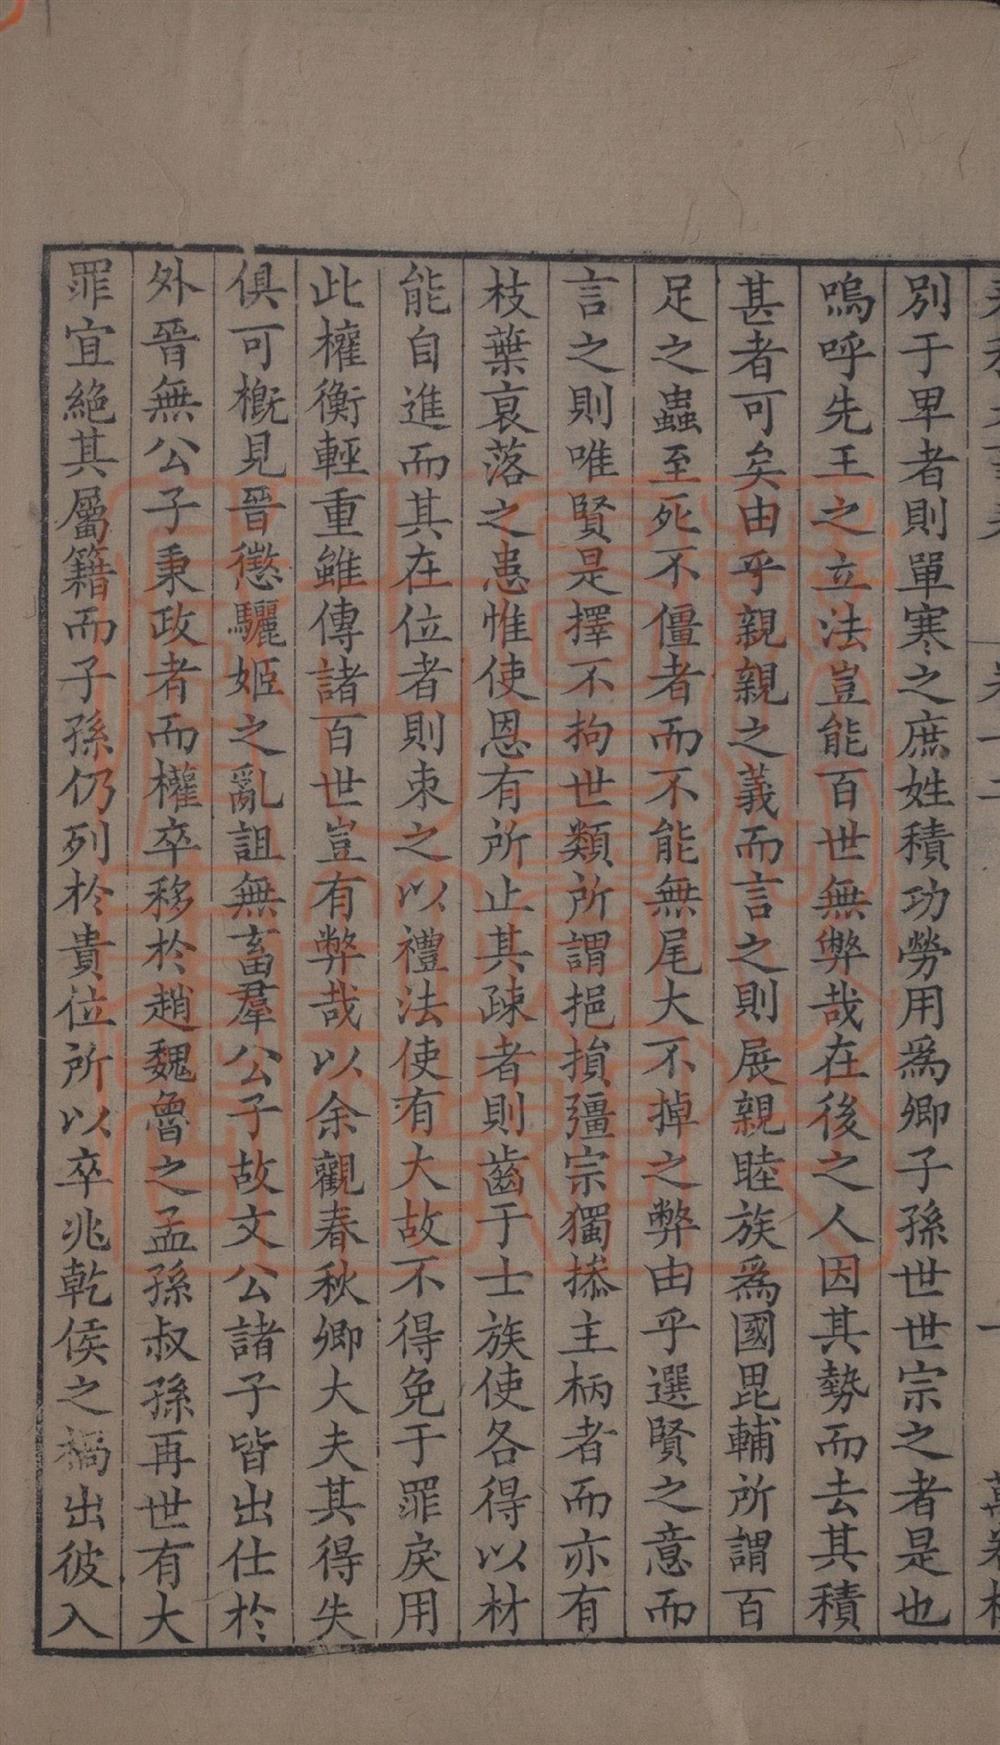 別于卑者則單寒之庶姓積功勞用爲卿子孫世世宗之者是也
嗚呼先王之立法豈能百世無弊哉在後之人因其勢而去其積
甚者可矣由乎親親之義而言之則展親睦族爲國毘輔所謂百
足之蟲至死不僵者而不能無尾大不掉之弊由乎選賢之意而
言之則唯賢是擇不拘世類所謂挹損彊宗獨操主柄者而亦有
枝葉衰落之患惟使恩有所止其疎者則齒于士族使各得以材
能自進而其在位者則束之以禮法使有大故不得免于罪戾用
此權衡輕重雖傳諸百世豈有弊哉以余觀春秋卿大夫其得失
俱可概見晉懲驪姬之亂詛無畜羣公子故文公諸子皆出仕於
外晉無公子秉政者而權卒移於趙魏魯之孟孫叔孫再世有大
罪宜絕其屬籍而子孫仍列於貴位所以卒兆乾侯之禍出彼入